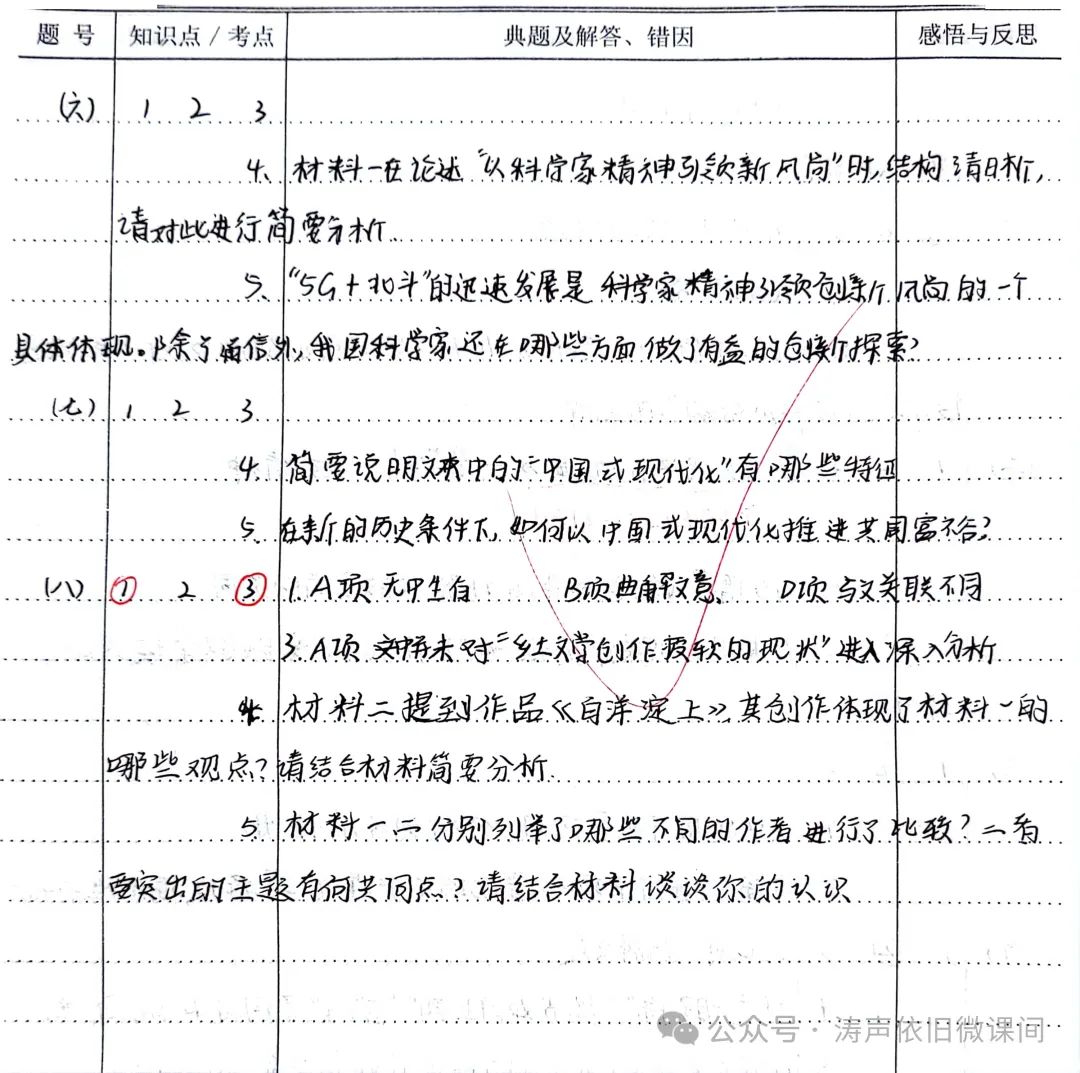 题 号 知识点 / 考点 典题及解答、错因 感悟与反思
(六) 1 2 3
4、材料一在论述“以科学家精神引领新风尚”时,结构清晰,
请对此进行简要分析.
5、“5G+北斗”的迅速发展是科学家精神引领创新风尚的一个
具体体现。除了通信外,我国科学家还在哪些方面做了有益的创新探索?
(七) 1 2 3
4. 简要说明文中的“中国式现代化”有哪些特征
5. 在新的历史条件下,如何以中国式现代化推进共同富裕?
(八) ① 2 ③ 1. A项 无中生有 B项曲解文意、 D项与文关联不同
3. A项 文中未对“乡土文学创作疲软的现状”进入深入分析
4. 材料二提到作品《白洋淀上》,其创作体现了材料一的
哪些观点?请结合材料简要分析.
5. 材料一二分别列举了哪些不同的作者进行了比较?二者
要突出的主题有何共同点?请结合材料谈谈你的认识
公众号·涛声依旧微课间